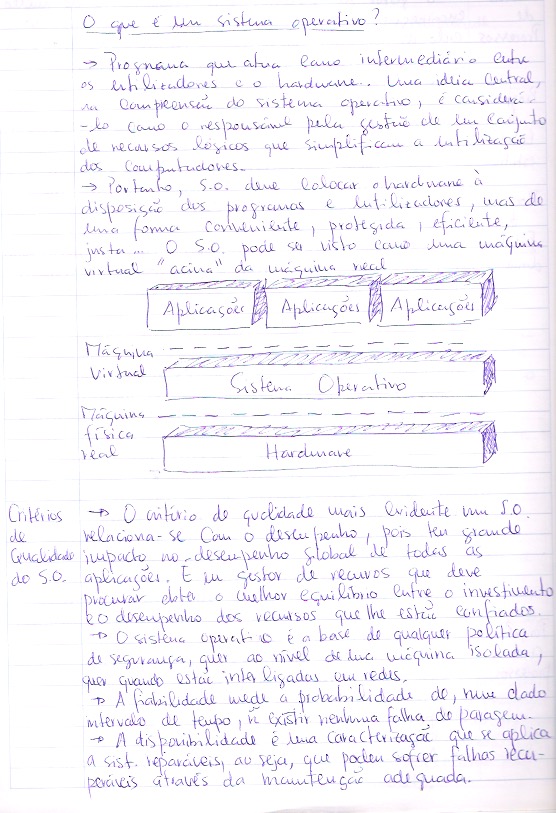 O que é um sistema operativo?
→ Programa que atua como intermediário entre
os utilizadores e o hardware. Uma ideia central,
na compreensão do sistema operativo, é considerá-
-lo como o responsável pela gestão de um conjunto
de recursos lógicos que simplificam a utilização
dos computadores.
→ Portanto, S.O. deve colocar o hardware à
disposição dos programas e utilizadores, mas de
uma forma conveniente, protegida, eficiente,
justa... O S.O. pode ser visto como uma máquina
virtual "acima" da máquina real
Aplicações Aplicações Aplicações
Máquina
virtual
Sistema Operativo
Máquina
física
real
Hardware
Critérios
de
Qualidade
do S.O.
→ O critério de qualidade mais evidente num S.O.
relaciona-se com o desempenho, pois tem grande
impacto no desempenho global de todas as
aplicações. É um gestor de recursos que deve
procurar obter o melhor equilíbrio entre o investimento
e o desempenho dos recursos que lhe estão confiados.
→ O sistema operativo é a base de qualquer política
de segurança, quer ao nível de uma máquina isolada,
quer quando estão interligadas em redes.
→ A fiabilidade mede a probabilidade de, num dado
intervalo de tempo, ñ existir nenhuma falha de paragem.
→ A disponibilidade é uma caracterização que se aplica
a sist. reparáveis, ou seja, que podem sofrer falhas recu-
peráveis através da manutenção adequada.